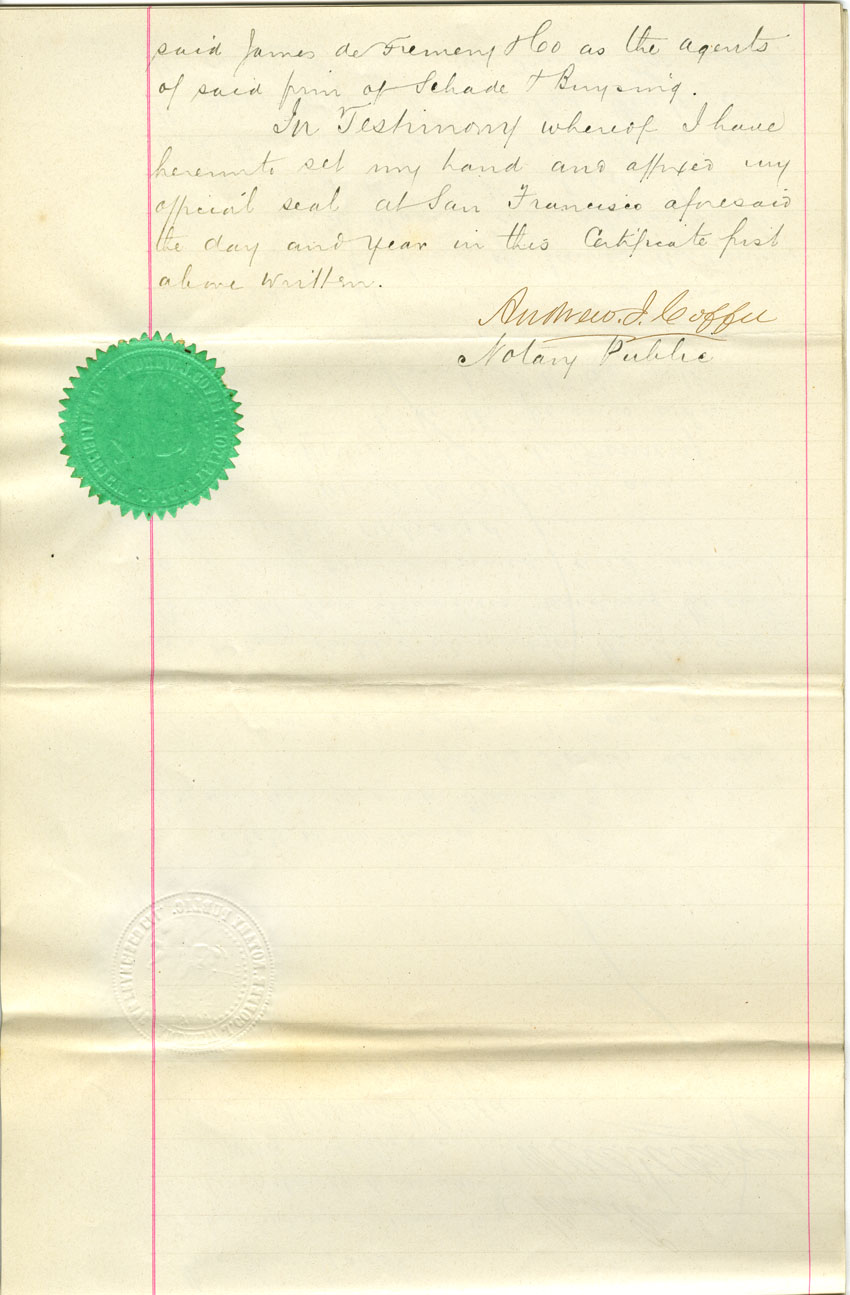 said James de Fremery & Co as the agents
of said firm of Schade & Buysing.
In Testimony whereof I have
hereunto set my hand and affixed my
official seal at San Francisco aforesaid
the day and year in this Certificate first
above written.
Andrew. J. Coffee
Notary Public
NOTARY PUBLIC.